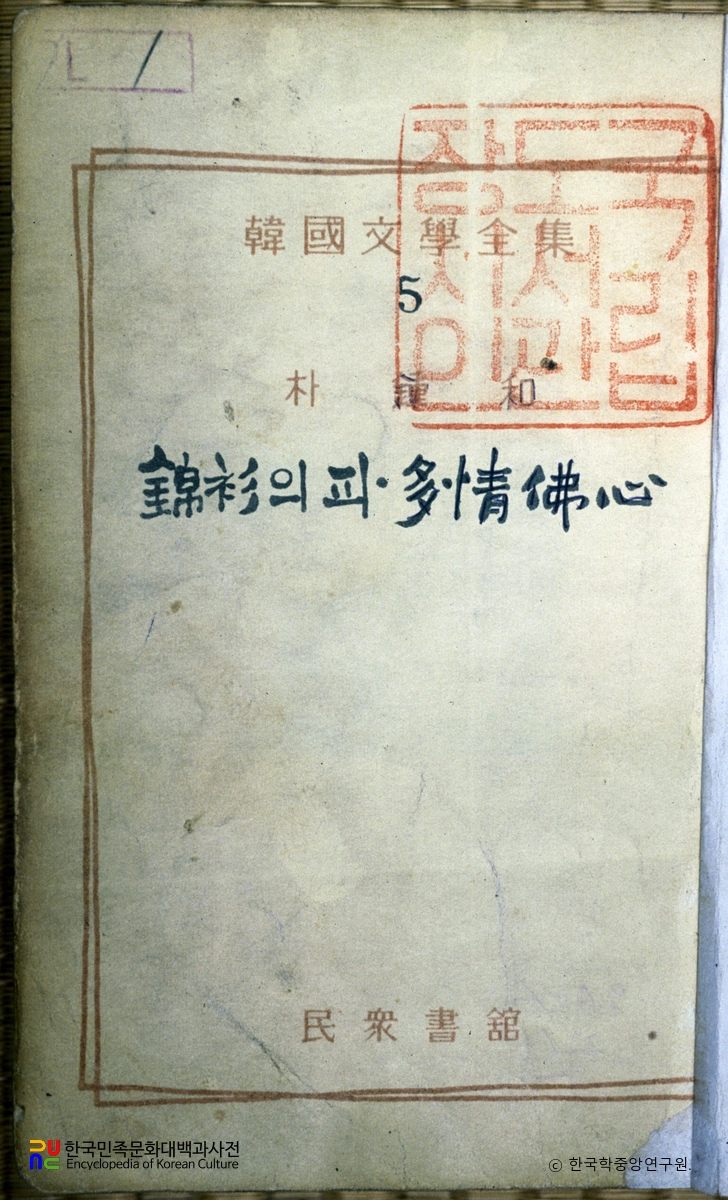 韓國文學全集
5
국립도서관장지인
朴鍾和
錦衫의피·多情佛心
民衆書舘
한국민족문화대백과사전
Encyclopedia of Korean Culture
ⓒ 한국학중앙연구원.